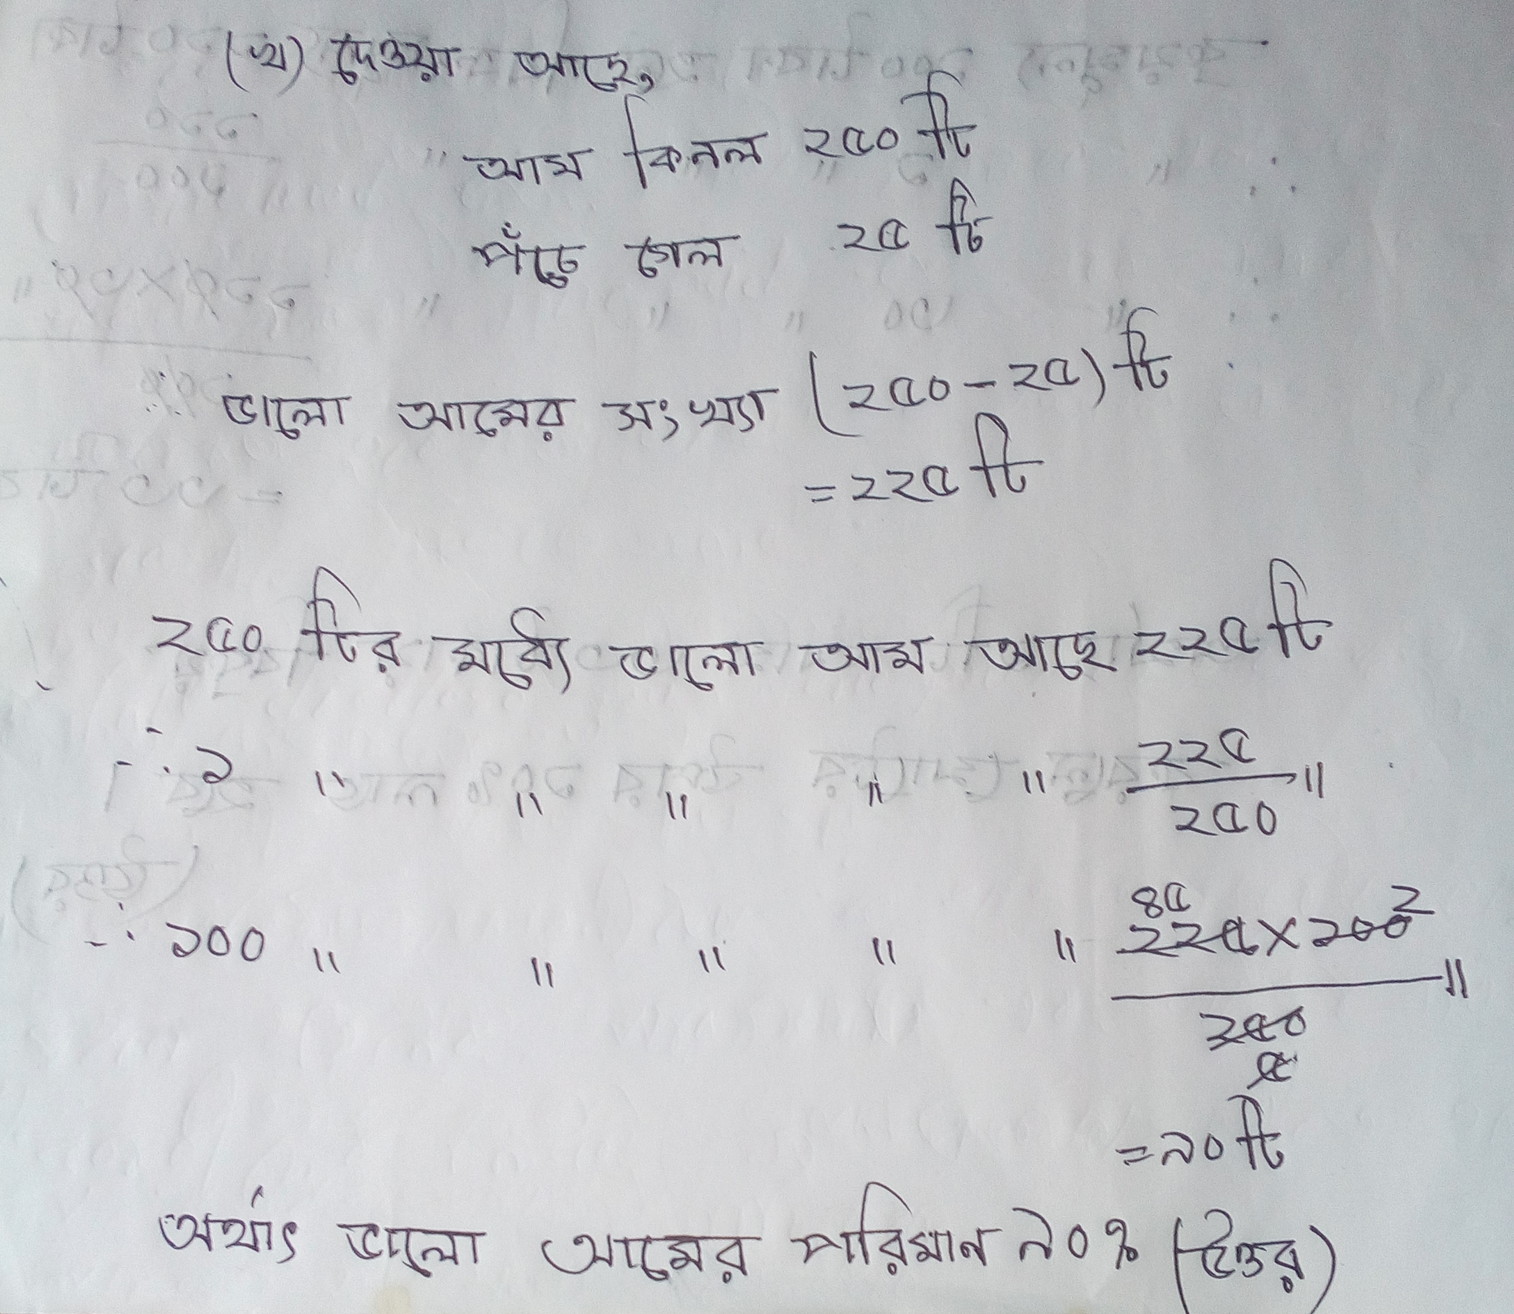 (খ) দেওয়া আছে,
আম কিনল ২৫০ টি
পঁচে গেল ২৫ টি
ভালো আমের সংখ্যা (২৫০-২৫) টি
=২২৫ টি
২৫০ টির মর্ধ্যে ভালো আম আছে ২২৫ টি
∴ ১ " " " " " ২২৫/২৫০ "
∴ ১০০ " " " " " ৪৫ ২২৫×১০০ ২ / ২৫০ ৫ "
=৯০ টি
অর্থাৎ ভালো আমের পরিমান ৯০% (উত্তর)